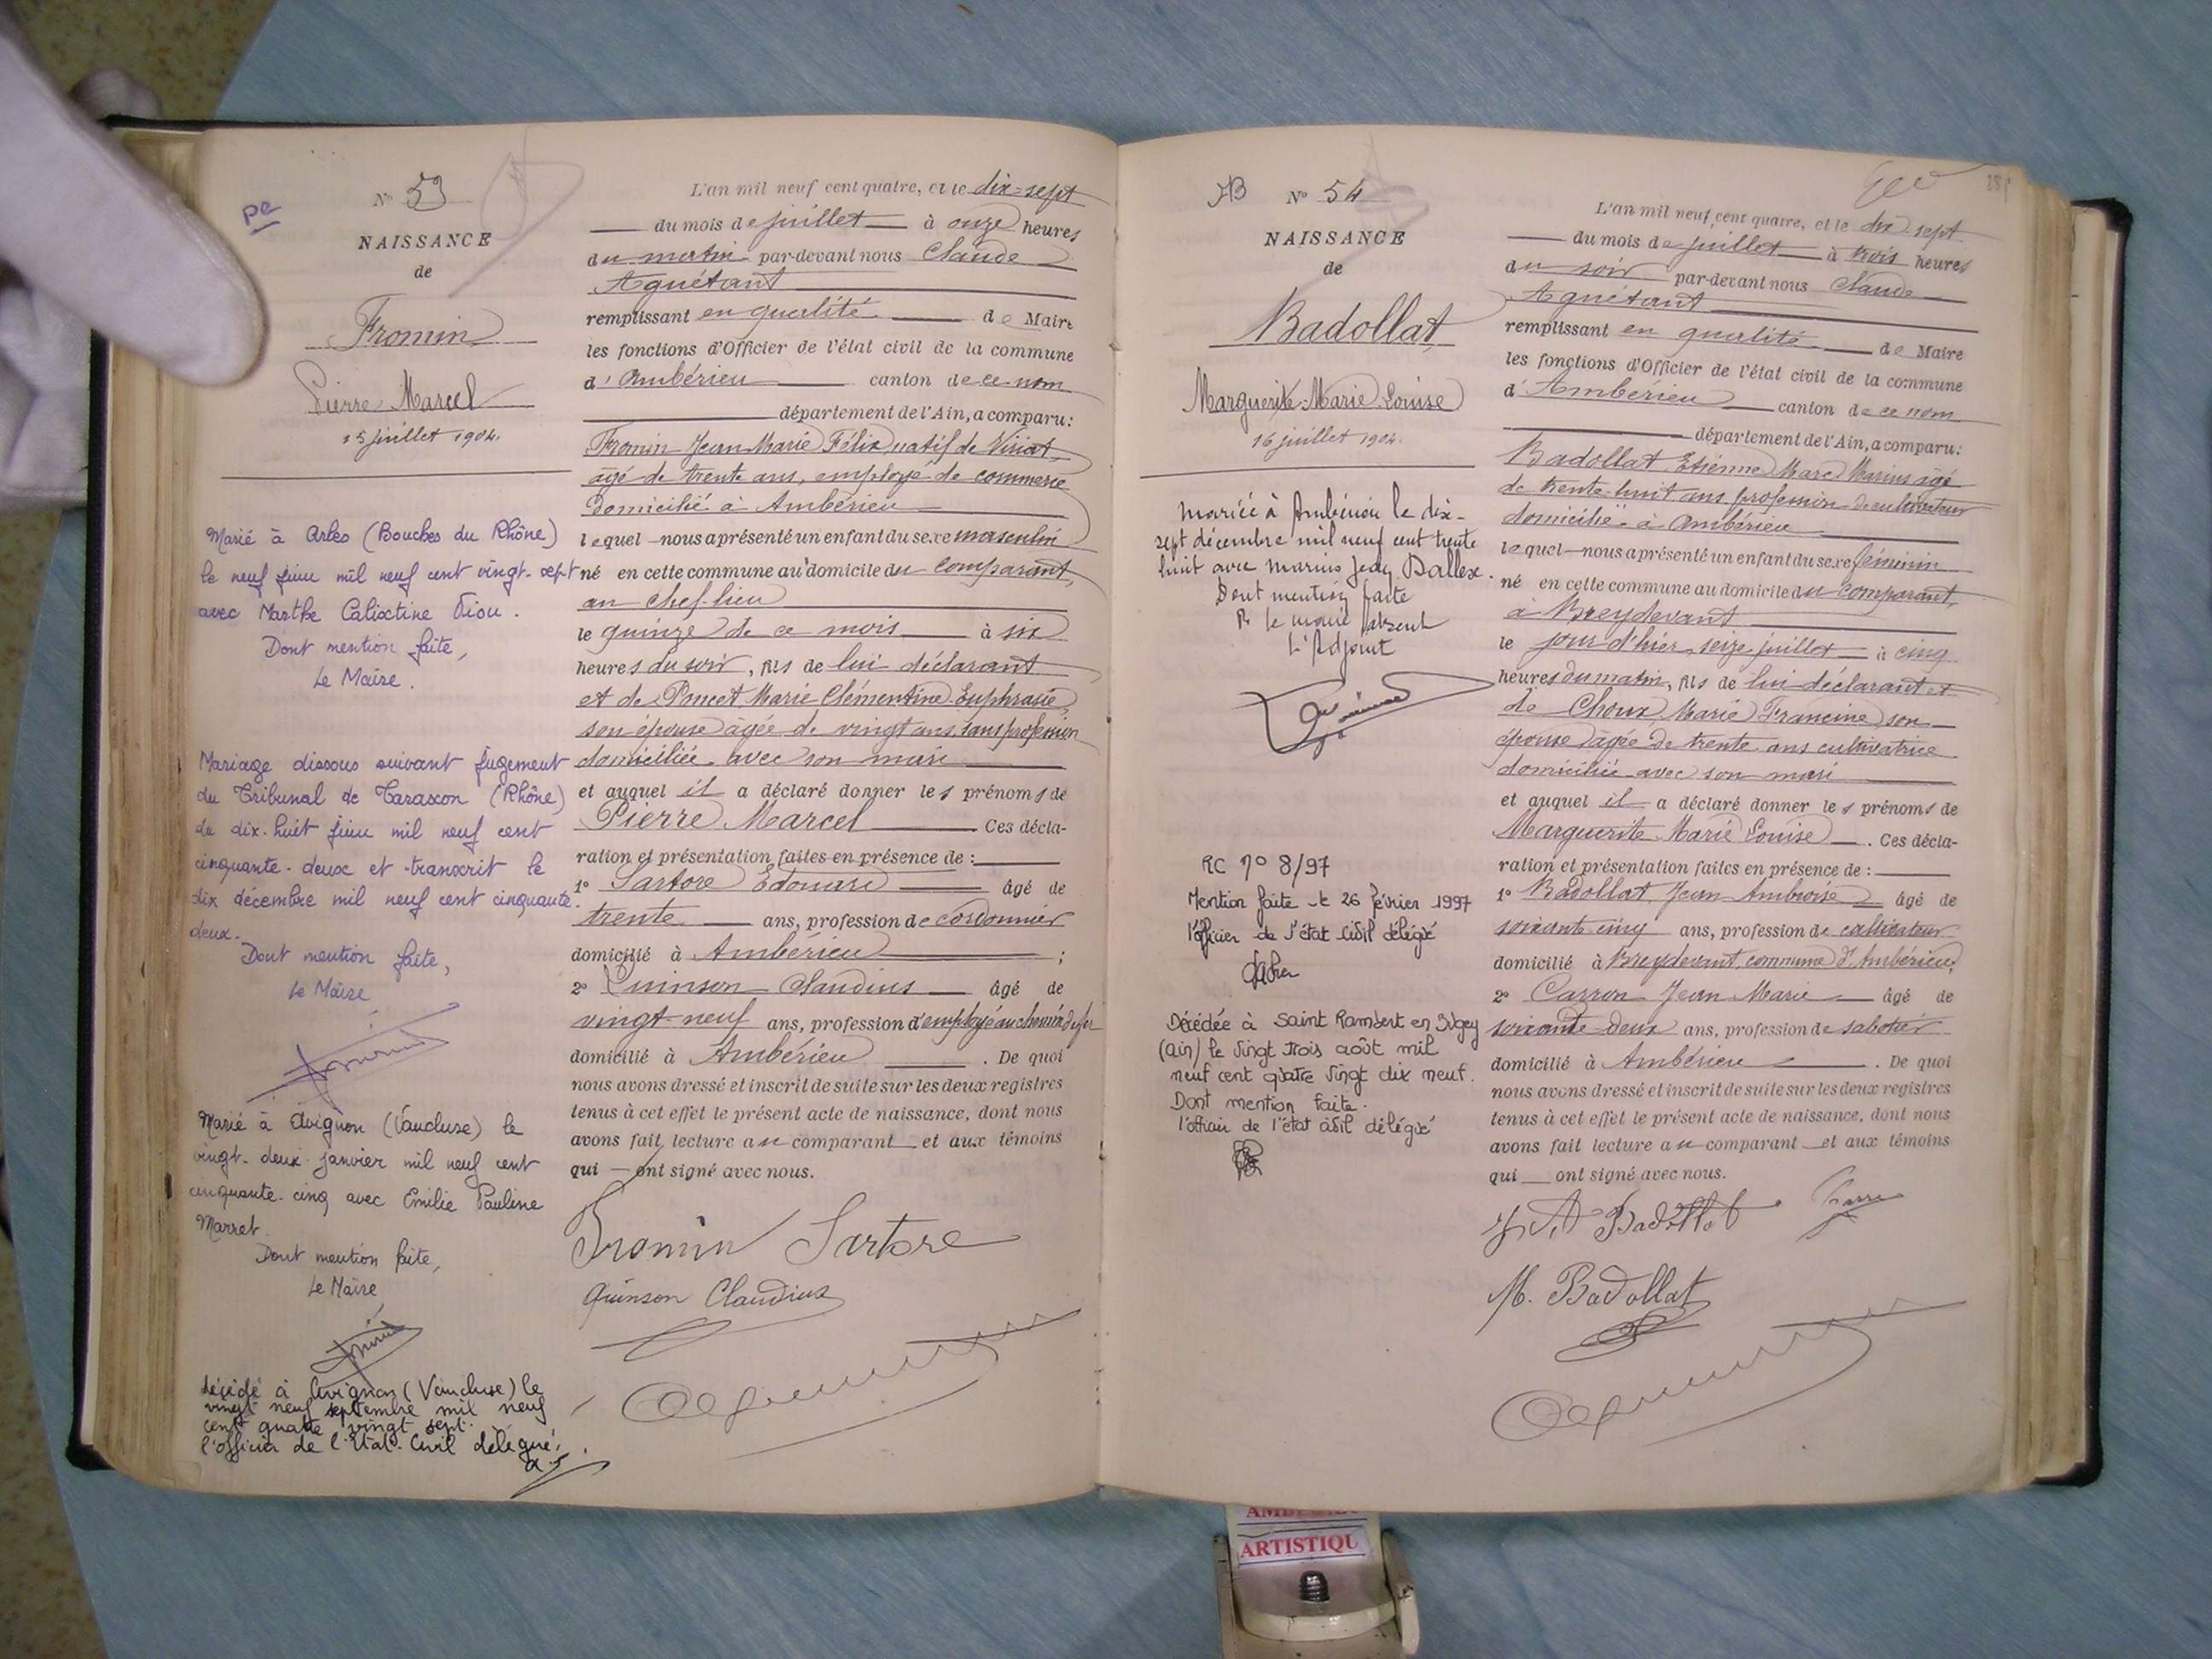 pe
N° 53
NAISSANCE
de
Fromin
Pierre Marcel
15 juillet 1904.
Marié à Arles (Bouches du Rhône)
le neuf juin mil neuf cent vingt-sept
avec Marthe Calixtine Viou.
Dont mention faite,
Le Maire.
Mariage dissous suivant jugement
du Tribunal de Tarascon (Rhône)
du dix-huit juin mil neuf cent
cinquante-deux et transcrit le
dix décembre mil neuf cent cinquante-
deux.
Dont mention faite,
Le Maire
Marié à Avignon (Vaucluse) le
vingt-deux janvier mil neuf cent
cinquante-cinq avec Emilie Pauline
Marret.
Dont mention faite,
Le Maire
décédé à Avignon (Vaucluse) le
vingt neuf septembre mil neuf
cent quatre vingt sept.
l'officier de l'Etat-Civil délégué,
L'an mil neuf cent quatre, et le dix-sept
du mois de juillet à onze heures
du matin par-devant nous Claude
Aguétant
remplissant en qualité de Maire
les fonctions d'Officier de l'état civil de la commune
d'Ambérieu canton de ce nom
département de l'Ain, a comparu:
Fromin Jean Marie Félix natif de Viriat
âgé de trente ans, employé de commerce
domicilié à Ambérieu
lequel nous a présenté un enfant du sexe masculin
né en cette commune au domicile du comparant,
au chef-lieu
le quinze de ce mois à six
heures du soir, fils de lui déclarant
et de Poncet Marie Clémentine Euphrasie,
son épouse âgée de vingt ans, sans profession
domiciliée avec son mari
et auquel il a déclaré donner les prénoms de
Pierre Marcel Ces décla-
ration et présentation faites en présence de :
1° Sartore Edouard âgé de
trente ans, profession de cordonnier
domicilié à Ambérieu ;
2° Quinson Claudius âgé de
vingt-neuf ans, profession d'employé au chemin de fer
domicilié à Ambérieu . De quoi
nous avons dressé et inscrit de suite sur les deux registres
tenus à cet effet le présent acte de naissance, dont nous
avons fait lecture au comparant et aux témoins
qui ont signé avec nous.
Fromin Sartore
Quinson Claudius
AB N° 54
NAISSANCE
de
Badollat
Marguerite Marie Louise
16 juillet 1904.
Mariée à Ambérieu le dix-
sept décembre mil neuf cent trente
huit avec Marius Jean Ballex.
Dont mention faite
Pr le maire absent
L'Adjoint
RC n° 8/97
Mention faite le 26 février 1997
l'officier de l'état civil délégué
Décédée à Saint Rambert en Bugey
(Ain) le vingt trois août mil
neuf cent quatre vingt dix neuf.
Dont mention faite.
l'officier de l'état civil délégué
L'an mil neuf cent quatre, et le dix sept
du mois de juillet à trois heures
du soir par-devant nous Claude
Aguétant
remplissant en qualité de Maire
les fonctions d'Officier de l'état civil de la commune
d'Ambérieu canton de ce nom
département de l'Ain, a comparu:
Badollat Etienne Marc Marius âgé
de trente-huit ans profession de cultivateur
domicilié à Ambérieu
lequel nous a présenté un enfant du sexe féminin
né en cette commune au domicile du comparant,
à Breydevant
le jour d'hier seize juillet à cinq
heures du matin, fils de lui déclarant et
de Choux Marie Francine son
épouse âgée de trente ans cultivatrice
domiciliée avec son mari
et auquel il a déclaré donner les prénoms de
Marguerite Marie Louise . Ces décla-
ration et présentation faites en présence de :
1° Badollat Jean Ambroise âgé de
soixante cinq ans, profession de cultivateur
domicilié à Breydevant, commune d'Ambérieu;
2° Carron Jean Marie âgé de
soixante-deux ans, profession de sabotier
domicilié à Ambérieu . De quoi
nous avons dressé et inscrit de suite sur les deux registres
tenus à cet effet le présent acte de naissance, dont nous
avons fait lecture au comparant et aux témoins
qui ont signé avec nous.
J. A Badollat
M. Badollat
ARTISTIQU